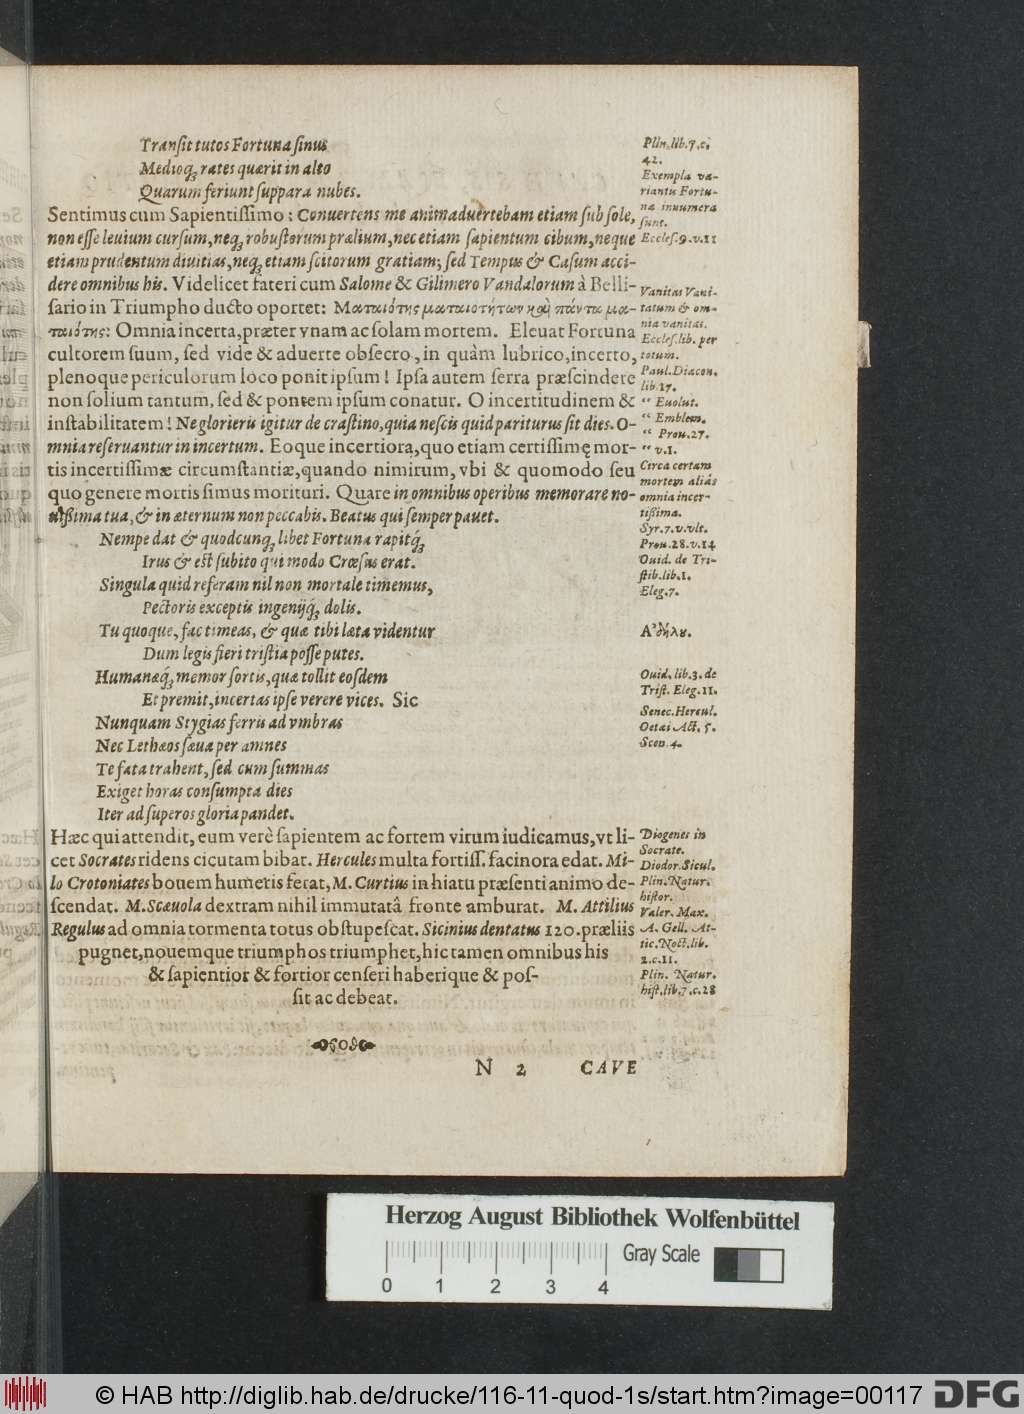 Tranſit tutos Fortuna ſinus
Medioq́; rates quærit in alto
Quarum feriunt ſuppara nubes.
Sentimus cum Sapientiſſimo: Conuertens me animaduertebam etiam ſub ſole,
non eſſe leuium curſum, neq́; robuſtorum prælium, nec etiam ſapientum cibum, neque
etiam prudentum diuitias, neq́; etiam ſcitorum gratiam; ſed Tempus & Caſum acci-
dere omnibus his. Videlicet fateri cum Salome & Gilimero Vandalorum à Belli-
ſario in Triumpho ducto oportet: Ματαιότης ματαιοτήτων καὶ πάντα μα-
ταιότης: Omnia incerta, præter vnam ac ſolam mortem. Eleuat Fortuna
cultorem ſuum, ſed vide & aduerte obſecro, in quàm lubrico, incerto,
plenoque periculorum loco ponit ipſum! Ipſa autem ſerra præſcindere
non ſolium tantum, ſed & pontem ipſum conatur. O incertitudinem &
inſtabilitatem! Ne glorieris igitur de craſtino, quia neſcis quid pariturus ſit dies. O-
mnia reſeruantur in incertum. Eoque incertiora, quo etiam certiſſimę mor-
tis incertiſſimæ circumſtantiæ, quando nimirum, vbi & quomodo ſeu
quo genere mortis ſimus morituri. Quare in omnibus operibus memorare no-
uißima tua, & in æternum non peccabis. Beatus qui ſemper pauet.
Nempe dat & quodcunq́; libet Fortuna rapitq́;
Irus & eſt ſubito qui modo Crœſus erat.
Singula quid referam nil non mortale timemus,
Pectoris exceptis ingenijq́; dolis.
Tu quoque, fac timeas, & quæ tibi læta videntur
Dum legis fieri triſtia poſſe putes.
Humanæq́; memor ſortis, quæ tollit eoſdem
Et premit, incertas ipſe verere vices. Sic
Nunquam Stygias ferris ad vmbras
Nec Lethæos ſæua per amnes
Te fata trahent, ſed cum ſummas
Exiget horas conſumpta dies
Iter ad ſuperos gloria pandet.
Hæc qui attendit, eum verè ſapientem ac fortem virum iudicamus, vt li-
cet Socrates ridens cicutam bibat. Hercules multa fortiſſ. facinora edat. Mi-
lo Crotoniates bouem humeris ferat, M. Curtius in hiatu præſenti animo de-
ſcendat. M. Scæuola dextram nihil immutatâ fronte amburat. M. Attilius
Regulus ad omnia tormenta totus obſtupeſcat. Sicinius dentatus 120. præliis
pugnet, nouemque triumphos triumphet, hic tamen omnibus his
& ſapientior & fortior cenſeri haberique & poſ-
ſit ac debeat.
N 2 CAVE
Plin. lib. 7. c.
42.
Exempla va-
riantis Fortu-
næ innumera
ſunt.
Eccleſ. 9. v. 11
Vanitas Vani-
tatum & om-
nia vanitas.
Eccleſ. lib. per
totum.
Paul. Diacon.
lib. 17.
“ Euolut.
“ Emblem.
“ Prou. 27.
“ v. 1.
Circa certam
mortem aliàs
omnia incer-
tißima.
Syr. 7. v. vlt.
Prou. 28. v. 14
Ouid. de Tri-
ſtib. lib. 1.
Eleg. 7.
Ἀδήλου.
Ouid. lib. 3. de
Triſt. Eleg. 11.
Senec. Hercul.
Oetæi Act. 5.
Scen. 4.
Diogenes in
Socrate.
Diodor. Sicul.
Plin. Natur.
hiſtor.
Valer. Max.
A. Gell. At-
tic. Noct. lib.
2. c. 11.
Plin. Natur.
hiſt. lib. 7. c. 28
Herzog August Bibliothek Wolfenbüttel
Gray Scale
0 1 2 3 4
© HAB http://diglib.hab.de/drucke/116-11-quod-1s/start.htm?image=00117
DFG